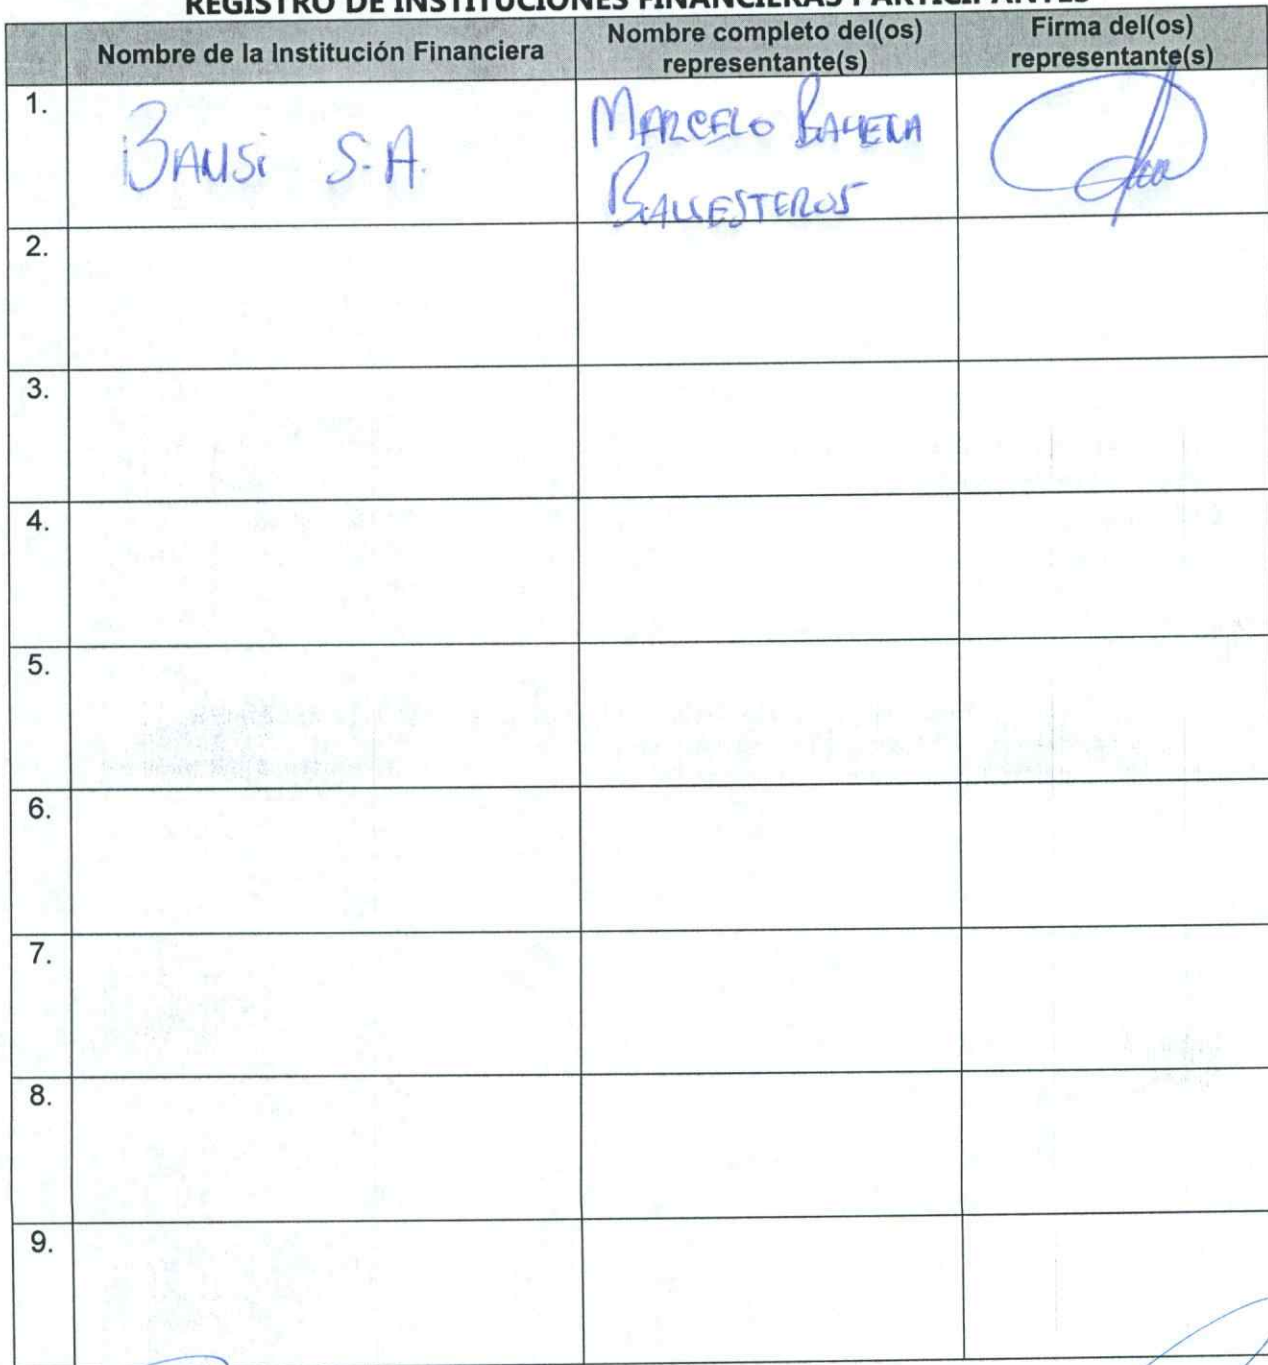 REGISTRO DE INSTITUCIONES FINANCIERAS PARTICIPANTES
Nombre de la Institución Financiera
Nombre completo del(os)
representante(s)
Firma del(os)
representante(s)
1.
BANSi S.A.
MARCELO BAHENA
BALLESTEROS
2.
3.
4.
5.
6.
7.
8.
9.